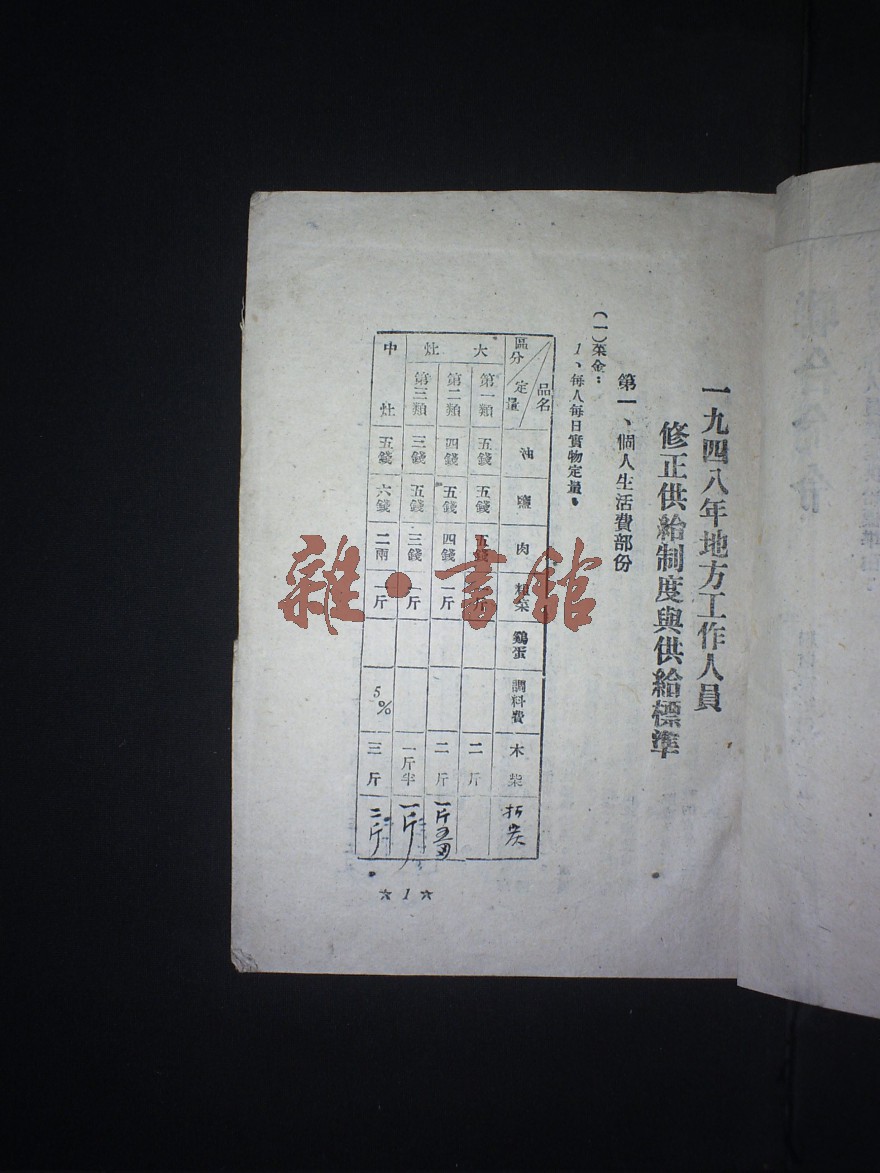 一九四八年地方工作人員
修正供給制度與供給標準
第一、個人生活費部份
(一)菜金：
1、每人每日實物定量。
區分 定量 品名 油 鹽 肉 粗菜 鷄蛋 調料費 木柴
大灶 第一類 五錢 五錢 五錢 斤 二斤
第二類 四錢 五錢 四錢 一斤 二斤
第三類 三錢 五錢 三錢 一斤 一斤半 一斤
中灶 五錢 六錢 二兩 一斤 5% 三斤 二斤
☆ 1 ☆
雜·書館